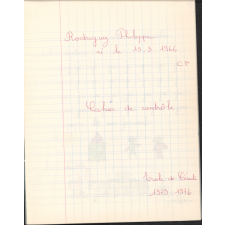 Rodriguez Philippe
né le 19.3 1966
CP
Cahier de contrôle
Ecole de
1973-1974